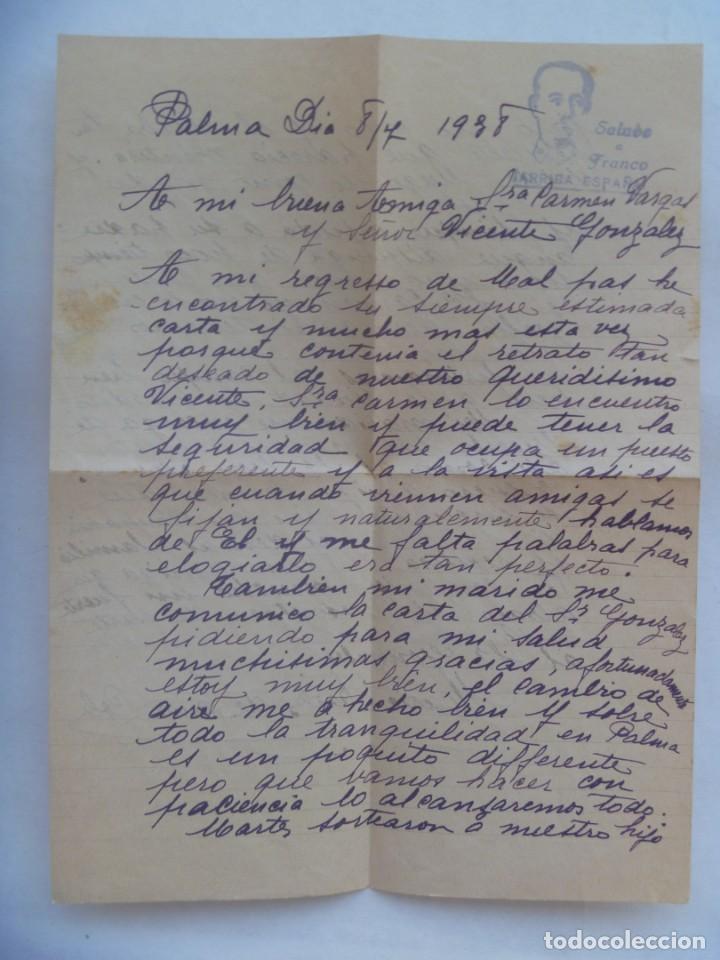 Palma Dia 8/7 1938
Saludo
a
Franco
ARRIBA ESPAÑA
A mi buena Amiga Sra Carmen Vargas
y Señor Vicente Gonzalez
A mi regresso de Mal pas he
encontrado su siempre estimada
carta y mucho mas esta vez
porque contenia el retrato tan
deseado de nuestro queridisimo
Vicente, Sra Carmen lo encuentro
muy bien y puede tener la
seguridad que ocupa un puesto
preferente y a la vista asi es
que cuando viennen amigas se
fijan y naturalemente hablamos
de El y me falta palabras para
elogiarlo era tan perfecto.
Tambien mi marido me
comunico la carta del Sr Gonzalez
pidiendo para mi salud
muchisimas gracias, afortunadamente
estoy muy bien, el cambio de
aire me a hecho bien y sobre
todo la tranquilidad en Palma
es un poquito differente
pero que vamos hacer con
paciencia lo alcanzaremos todo.
Martes sortearon a nuestro hijo
todocoleccion
todocoleccion.net